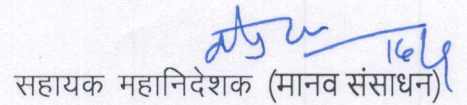 सहायक महानिदेशक (मानव संसाधन)